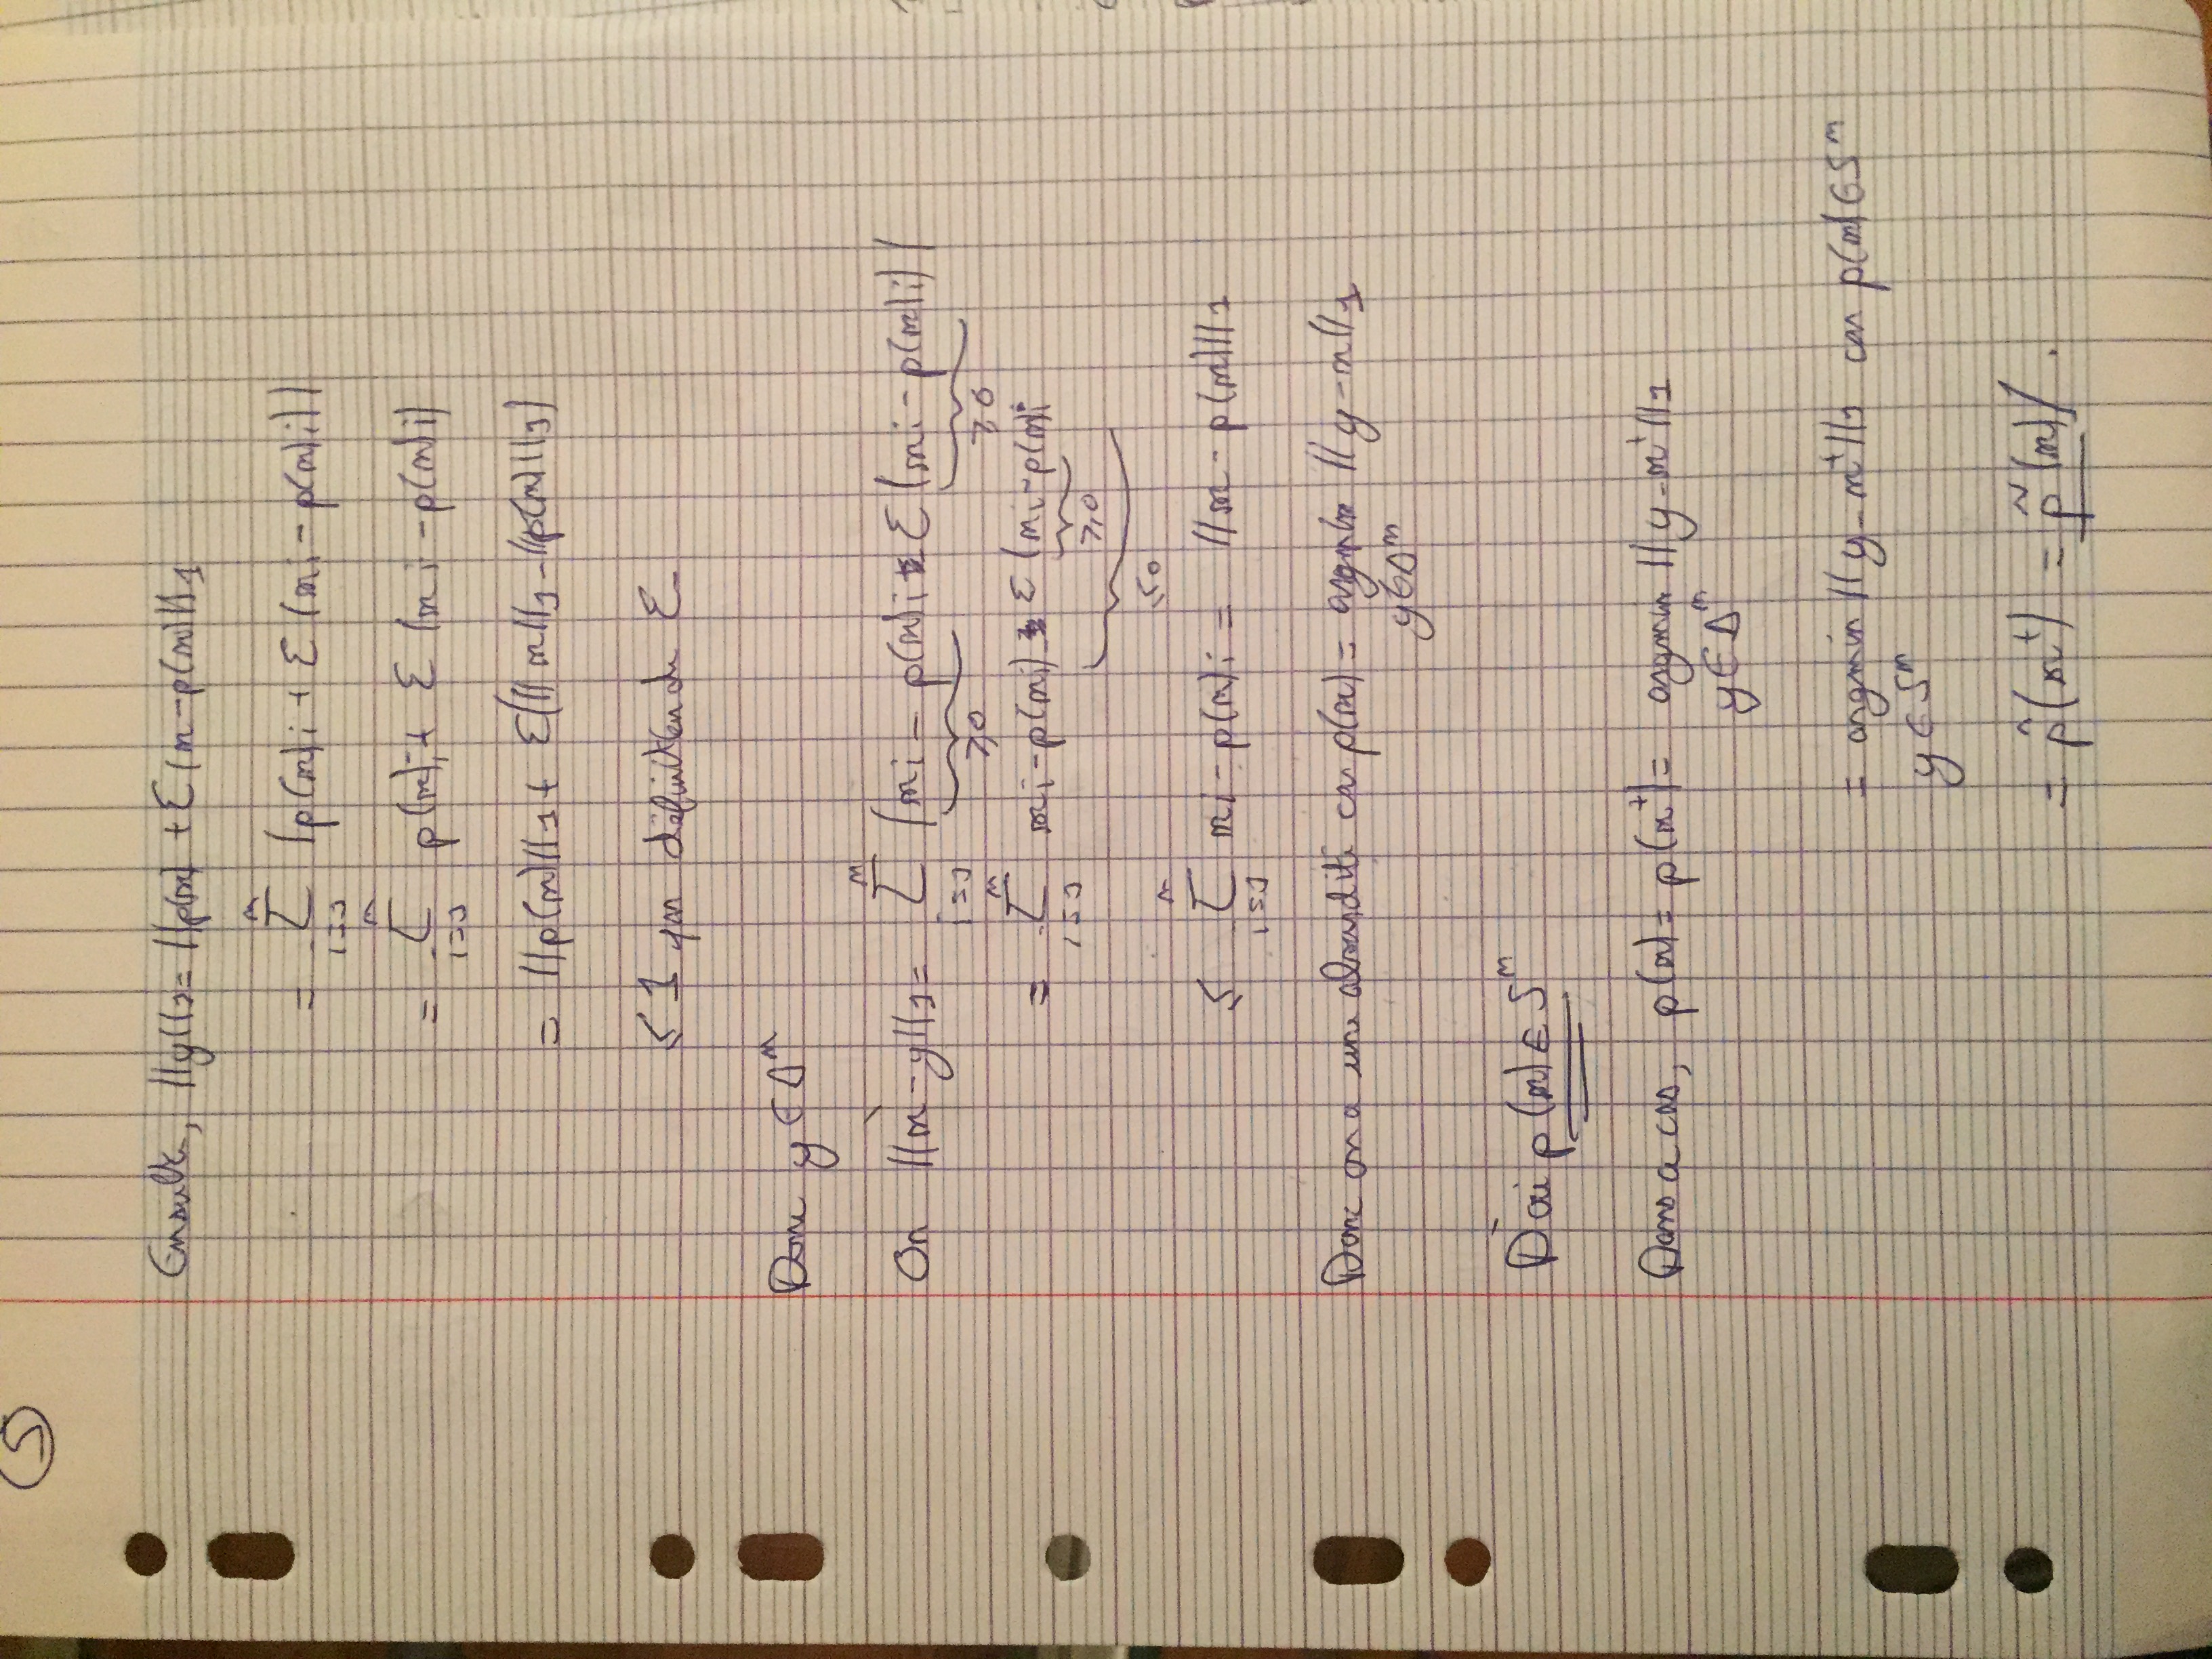 5
Ensuite, ||y||₁ = ||p(x) + ε(x - p(x))||₁
= Σ_{i=1}^{n} |p(x)i + ε(xi - p(x)i)|
= Σ_{i=1}^{n} p(x)i + ε(xi - p(x)i)
= ||p(x)||₁ + ε(||x||₁ - ||p(x)||₁)
≤ 1 par définition de ε
Donc y ∈ Δⁿ
Or ||x - y||₁ = Σ_{i=1}^{n} |xi - p(x)i - ε(xi - p(x)i)|
≥0 ≥0
= Σ_{i=1}^{n} xi - p(xi) - ε(xi - p(x)i
≥0
≤0
≤ Σ_{i=1}^{n} xi - p(x)i = ||x - p(x)||₁
Donc on a une absurdité car p(x) = argmin ||y - x||₁
y∈Δⁿ
D'où p(x) ∈ Sⁿ
Dans ce cas, p(x) = p(x⁺) = argmin ||y - x⁺||₁
y ∈ Δⁿ
= argmin ||y - x⁺||₁ car p(x) ∈ Sⁿ
y ∈ Sⁿ
= p̂(x⁺) = p̃(x) / .